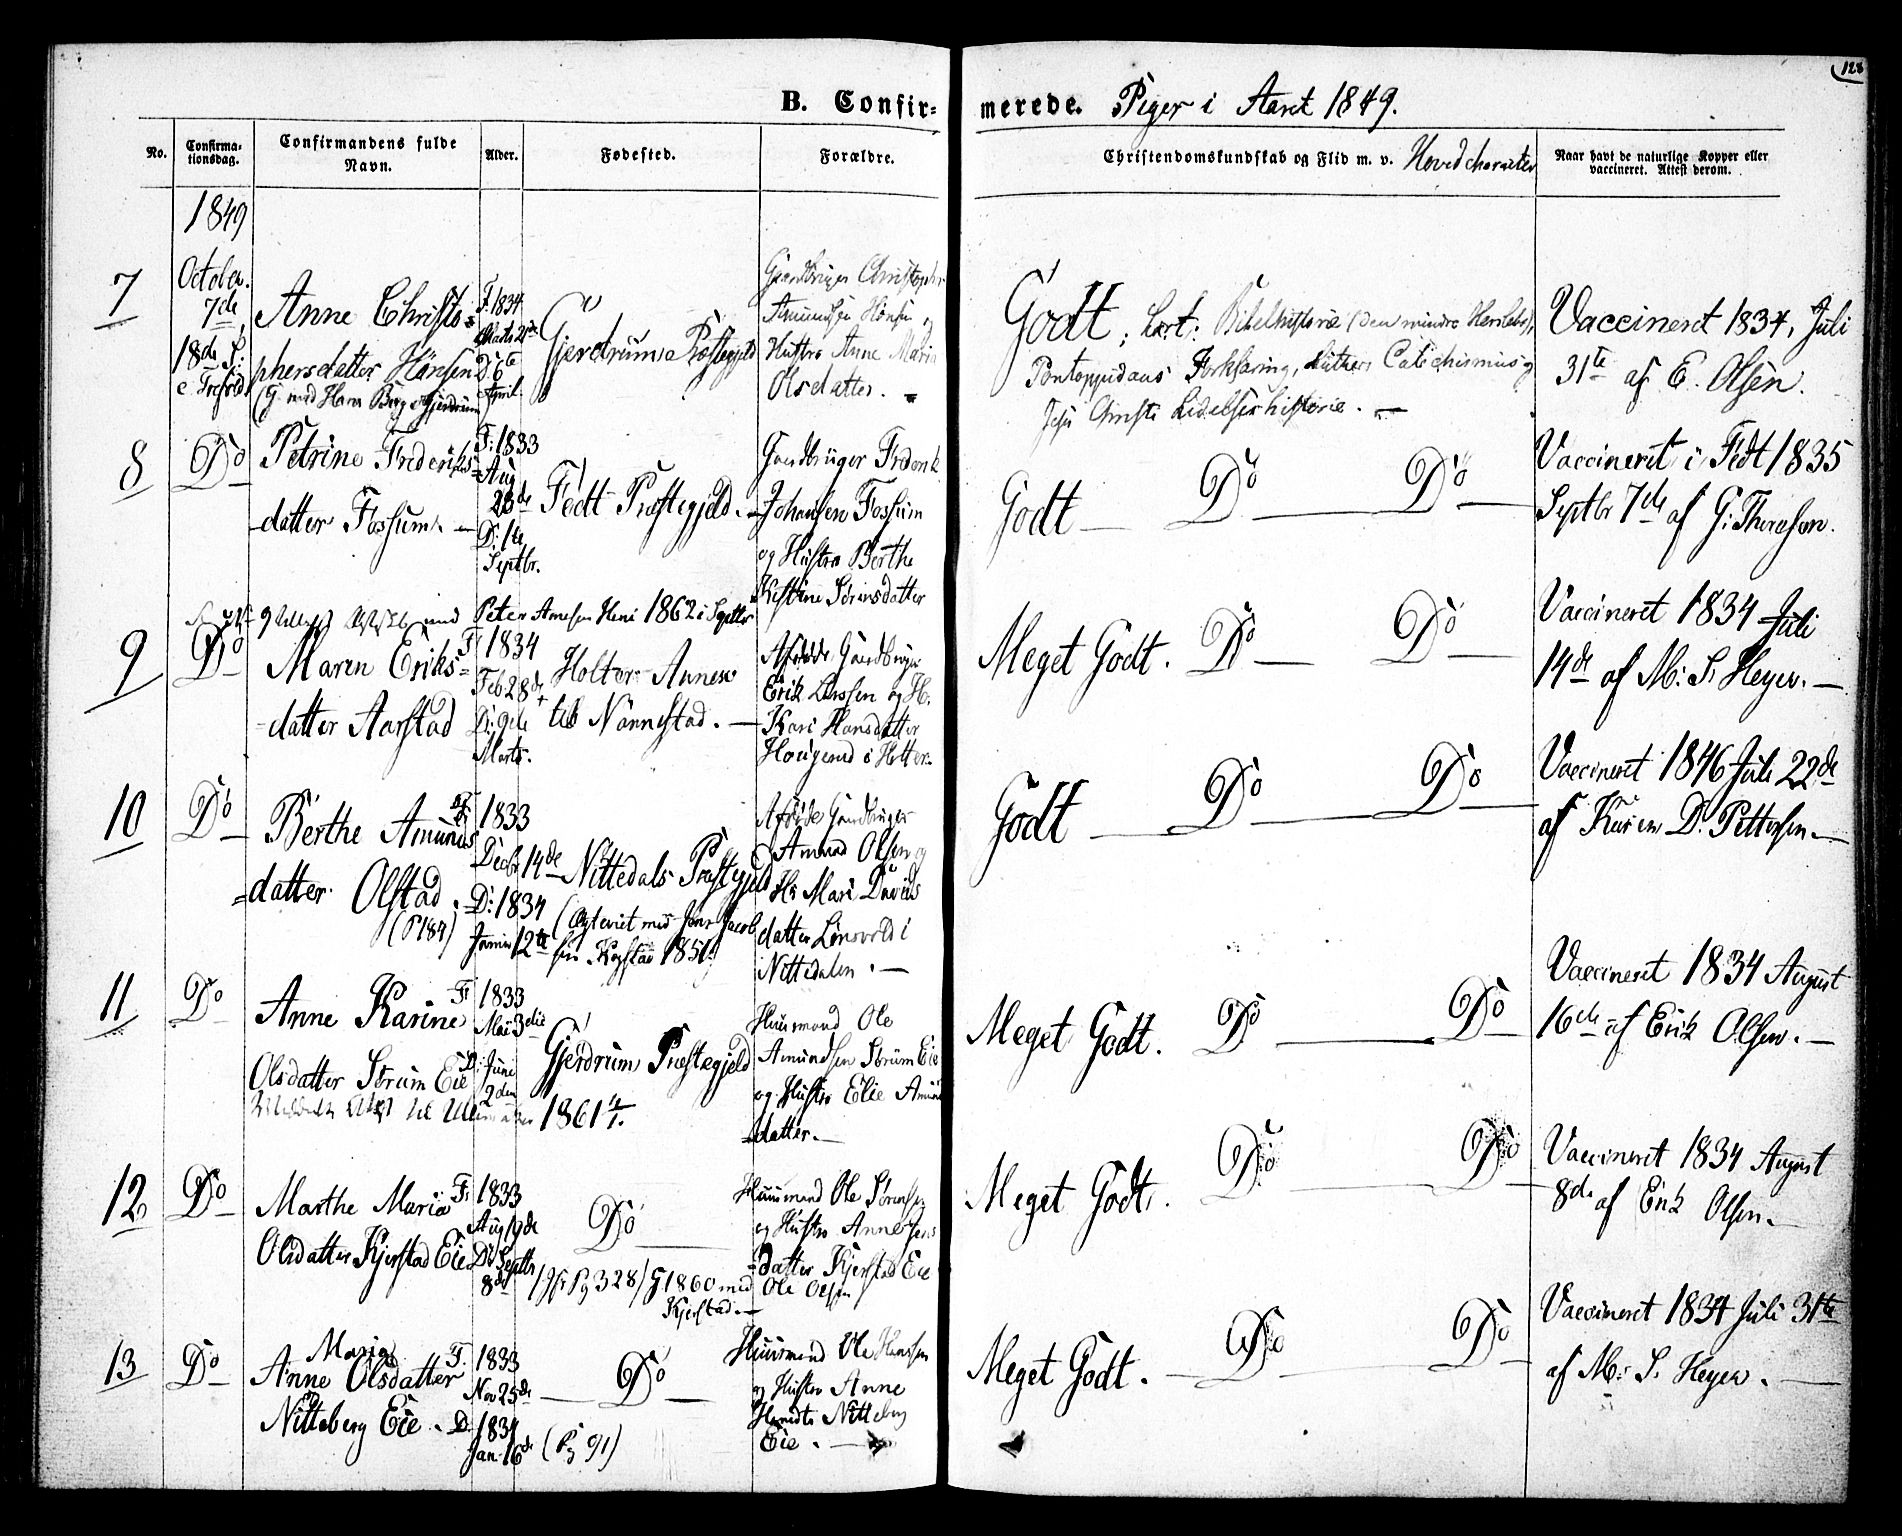 128
B. Confir- merede. Piger i Aaret 1849.
No.
Confirma-
tionsdag.
Confirmandens fulde
Navn.
Alder.
Fødested.
Forældre.
Christendomskundskab og Flid m. v. Hovedcharacter
Naar havt de naturlige Kopper eller
vaccineret. Attest derom.
1849
7
October.
7de
18de S:
e Trefold:
Anne Christo=
phersdatter Hönsen
(G med Hans Berg Gjerdrum
F. 1834
Marts 21de
D: 6te
April.
Gjerdrums Præstegjeld
Gaardbruger Christopher
Amundsen Hönsen og
Hustro Anne Maria
Olsdatter.
Godt; Lært: Bibelhistorie (den mindre Herslebs),
Pontoppidans Forklaring, Luthers Catechismus og
Jesu Christi Lidelseshistorie.
Vaccineret 1834, Juli
31te af E. Olsen.
8
Do
Petrine Frederiks=
datter Fossum.
F: 1833
Aug
28de
D: 1te
Septbr.
Fedt Præstegjeld.
Gaardbruger Frederik
Johansen Fossum
og Hustro Berthe
Kistine Sörensdatter
Godt Do Do
Vaccineret i Fedt 1835
Septbr 7de af G: Thoresen.
med Peter Arnesen 1862 i Septbr
9
Do
Maren Eriks=
datter Aarstad
F: 1834
Feb 28de
D: 9de
Marts.
Holter Annex
til Nannestad.
Afdøde Gaardbruger
Erik Larsen og H:
Kari Hansdatter
Hougerud i Holter.
Meget Godt. Do Do
Vaccineret 1834 Juli
14de af M: S. Heyer.
10
Do
Berthe Amunds
=datter Olstad.
(P 184)
F: 1833
Decbr 14de
D: 1834
Januar 12te
Nittedals Præstegjeld
(Egteviet med Jens Jacob
sen Kogstad 1851.
Afdøde Gaardbruger
Amund Olsen og
H: Mari Davids
datter i
Nittedalen.
Godt Do Do
Vaccineret 1846 Juli 22de
af Karen D. Pettersen.
11
Do
Anne Karine
Olsdatter Sörum Eie
F: 1833
Mai 3die
D: Juni
2den
Gjerdrum Præstegjeld
Attest til 1861
Huusmand Ole
Amundsen Sörum Eie
og Hustro Elie Amund
datter.
Meget Godt. Do Do
Vaccineret 1834 August
16de af Erik Olsen.
12
Do
Marthe Maria
Olsdatter Kjerstad Eie
F: 1833
Aug 19de
D: Septbr
8de
Do
Pg 328) G 1860 med Ole Olsen
Kjerstad.
Huusmand Ole Sörensen
og Hustro Anne Jens
=datter Kjerstad Eie
Meget Godt. Do Do
Vaccineret 1834 August
8de af Erik Olsen.
13
Do
Maria
Anne Olsdatter
Nitteberg Eie.
F. 1833
Nov 25de
D. 1834
Jan. 16de
Do
(Pg 91)
Huusmand Ole Hansen
og Hustro Anne
Nitteberg
Eie.
Meget Godt. Do Do
Vaccineret 1834 Juli 31te
af M: S. Heyer.